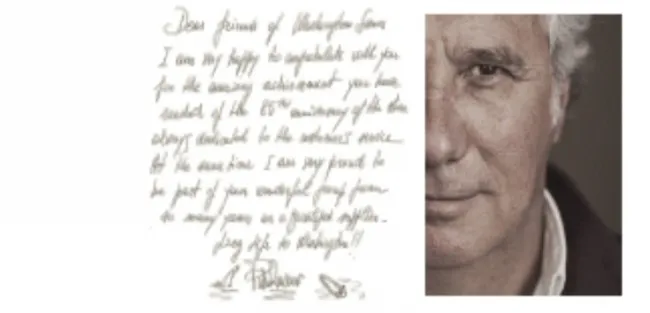 Dear friends of Washington
I am very happy to congratulate with you
for the amazing achievement you have
reached of the 65TH anniversary of the
always dedicated to the customer's service
At the same time I am very proud to
be part of your wonderful from
so many years as a supplier.
Long life to Washington!!